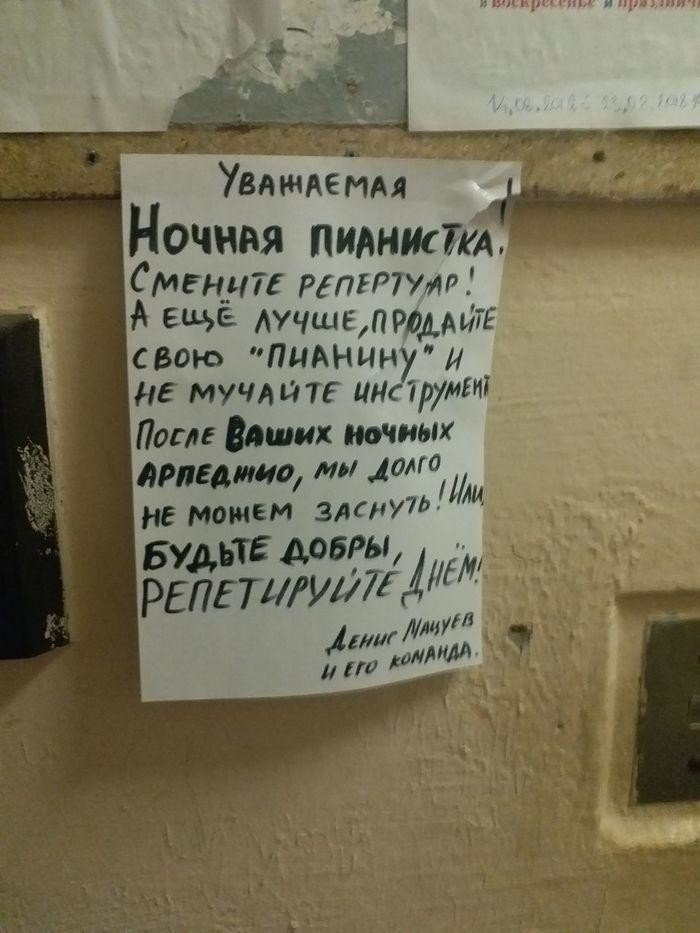 в воскресенье и праздничн
Уважаемая
Ночная пианистка!
Смените репертуар!
А ещё лучше, продайте
свою "пианину" и
не мучайте инструмент
После Ваших ночных
арпеджио, мы долго
не можем заснуть! Или,
будьте добры,
репетируйте днём!
Денис Мацуев
и его команда.